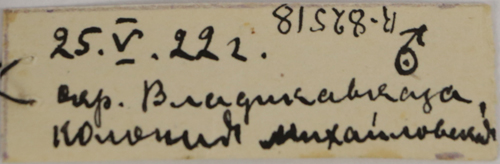 R-82518
25.V.22 г. ♂
окр. Владикавказа,
колония Михайловская